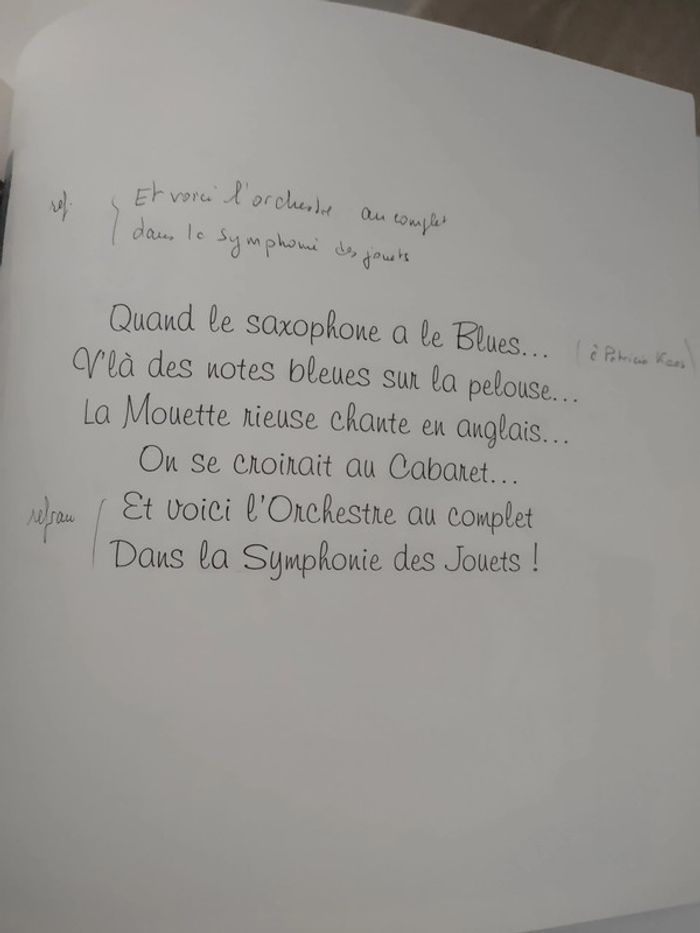 ref.
Et voici l'orchestre au complet
dans la symphonie des jouets
Quand le saxophone a le Blues...
(à Patricia Kaas)
V'là des notes bleues sur la pelouse...
La Mouette rieuse chante en anglais...
On se croirait au Cabaret...
refrain
Et voici l'Orchestre au complet
Dans la Symphonie des Jouets !